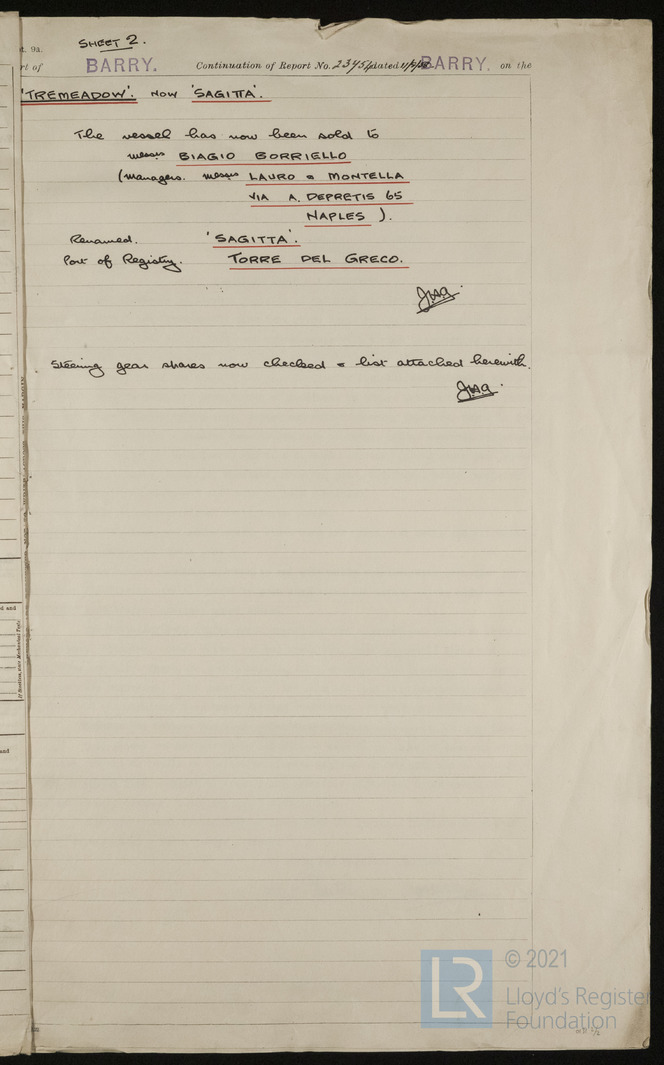 SHEET 2.
t. 9a.
rt of BARRY. Continuation of Report No. dated BARRY. on the
'TREMEADOW'. NOW 'SAGITTA'.
The vessel has now been sold to
messrs BIAGIO BORRIELLO
(managers. messrs LAURO & MONTELLA
VIA A. DEPRETIS 65
NAPLES ).
Renamed. 'SAGITTA'.
Port of Registry. TORRE DEL GRECO.
Steering gear spares now checked & list attached herewith.
d and
If Scantlings, state Mechanical Tests
and
LR
© 2021
Lloyd's Register
Foundation